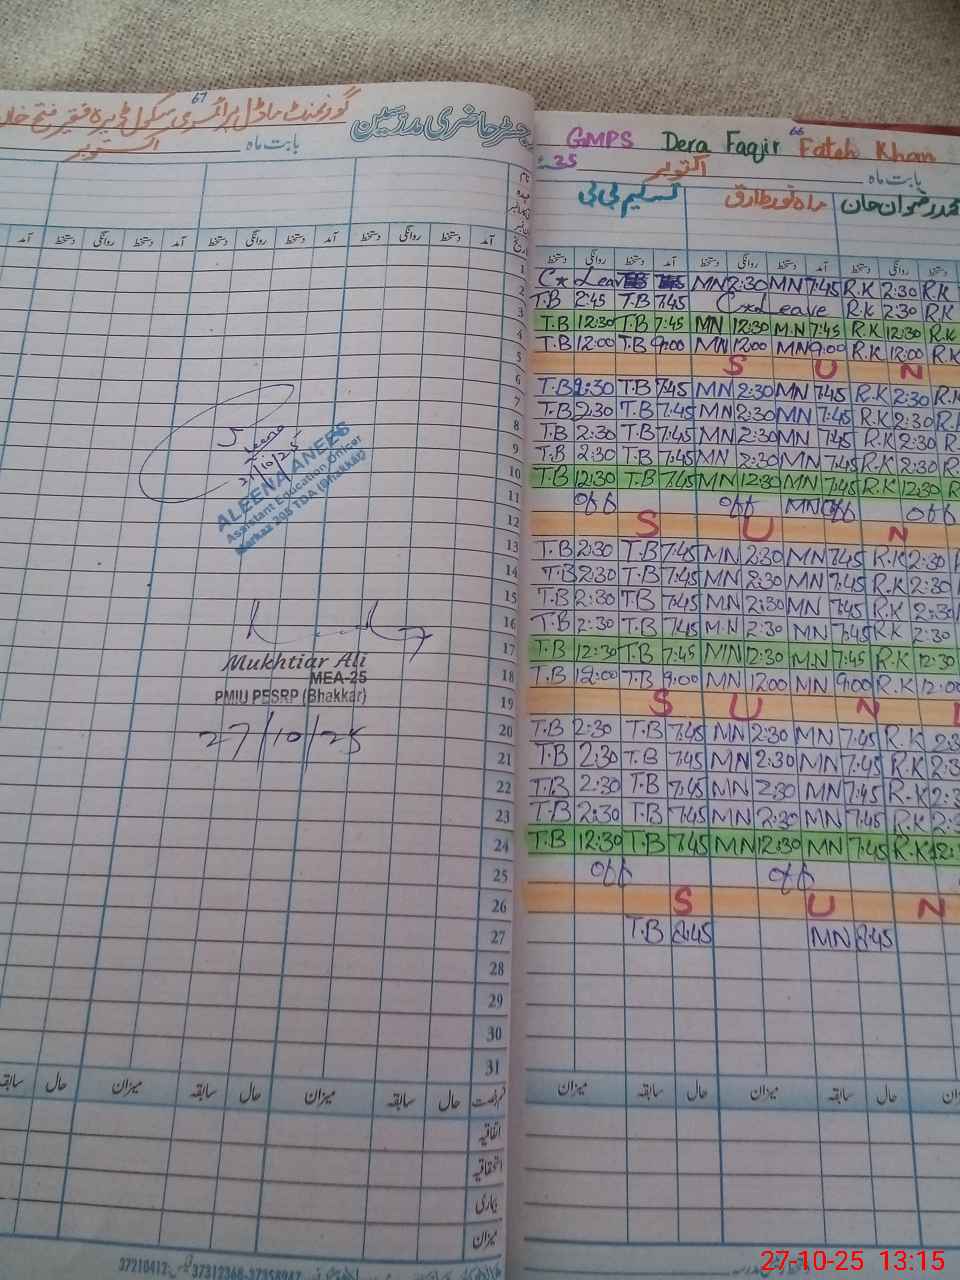 67
گورنمنٹ ماڈل پرائمری سکول ڈیرہ فقیر فتح خان
رجسٹر حاضری مدرسین
بابت ماہ اکتوبر
نام
عہدہ
تاریخ
آمد دستخط روانگی دستخط آمد دستخط روانگی دستخط آمد
1
2
3
4
5
6
7
8
9
10
11
12
13
14
15
16
17
18
19
20
21
22
23
24
25
26
27
28
29
30
31
Aleena
27/10/25
ALEENA ANEES
Assistant Education Officer
Markaz 205 TDA (Bhakkar)
Mukhtiar Ali
MEA-25
PMIU PESRP (Bhakkar)
27/10/25
حال سابقہ میزان حال سابقہ میزان حال سابقہ
اتفاقیہ
استحقاقیہ
بیماری
میزان
66
GMPS Dera Faqir Fateh Khan
بابت ماہ اکتوبر 25
محمد رضوان خان ماہ نور طارق تسکیم بی بی
دستخط روانگی دستخط آمد دستخط روانگی دستخط آمد دستخط روانگی دستخط
C* Leave MN 2:30 MN 7:45 R.K 2:30 R.K
T.B 2:45 T.B 7:45 C*Leave R.K 2:30 R.K
T.B 12:30 T.B 7:45 MN 12:30 M.N 7:45 R.K 12:30 R.K
T.B 12:00 T.B 9:00 MN 12:00 MN 9:00 R.K 12:00 R.K
S U N
T.B 2:30 T.B 7:45 MN 2:30 MN 7:45 R.K 2:30 R.K
T.B 2:30 T.B 7:45 MN 2:30 MN 7:45 R.K 2:30 R.K
T.B 2:30 T.B 7:45 MN 2:30 MN 7:45 R.K 2:30 R.
T.B 2:30 T.B 7:45 MN 2:30 MN 7:45 R.K 2:30 R.
T.B 12:30 T.B 7:45 MN 12:30 MN 7:45 R.K 12:30 R
off off MN off off
S U N
T.B 2:30 T.B 7:45 MN 2:30 MN 7:45 R.K 2:30
T.B 2:30 T.B 7:45 MN 2:30 MN 7:45 R.K 2:30
T.B 2:30 T.B 7:45 MN 2:30 MN 7:45 R.K 2:30
T.B 2:30 T.B 7:45 M.N 2:30 MN 7:45 R.K 2:30
T.B 12:30 T.B 7:45 MN 12:30 M.N 7:45 R.K 12:30
T.B 12:00 T.B 9:00 MN 12:00 MN 9:00 R.K 12:00
S U N
T.B 2:30 T.B 7:45 MN 2:30 MN 7:45 R.K 2:3
T.B 2:30 T.B 7:45 MN 2:30 MN 7:45 R.K 2:3
T.B 2:30 T.B 7:45 MN 2:30 MN 7:45 R.K 2:3
T.B 2:30 T.B 7:45 MN 2:30 MN 7:45 R.K 2:3
T.B 12:30 T.B 7:45 MN 12:30 MN 7:45 R.K 12:
off off
S U N
T.B 8:45 MN 8:45
حال سابقہ میزان حال سابقہ میزان
27-10-25 13:15